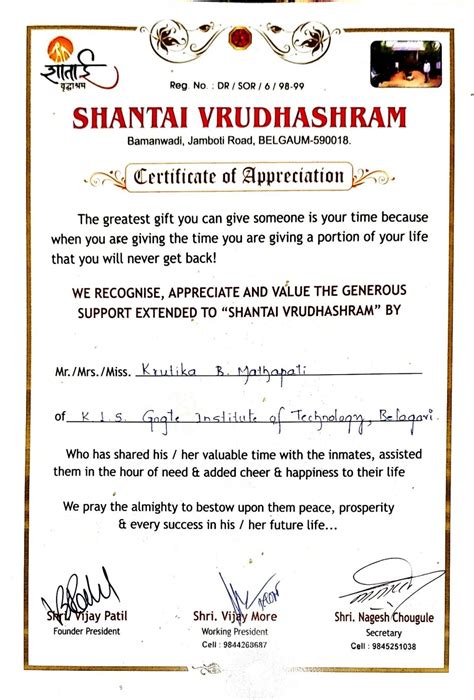 शांताई
वृद्धाश्रम
Reg. No. : DR / SOR / 6 / 98-99
SHANTAI VRUDHASHRAM
Bamanwadi, Jamboti Road, BELGAUM-590018.
Certificate of Appreciation
The greatest gift you can give someone is your time because
when you are giving the time you are giving a portion of your life
that you will never get back!
WE RECOGNISE, APPRECIATE AND VALUE THE GENEROUS
SUPPORT EXTENDED TO “SHANTAI VRUDHASHRAM” BY
Mr./Mrs./Miss. Krutika B. Mathapati
of K.L.S. Gogte Institute of Technology, Belagavi.
Who has shared his / her valuable time with the inmates, assisted
them in the hour of need & added cheer & happiness to their life
We pray the almighty to bestow upon them peace, prosperity
& every success in his / her future life...
Shri. Vijay Patil
Founder President
Shri. Vijay More
Working President
Cell : 9844268687
Shri. Nagesh Chougule
Secretary
Cell : 9845251038